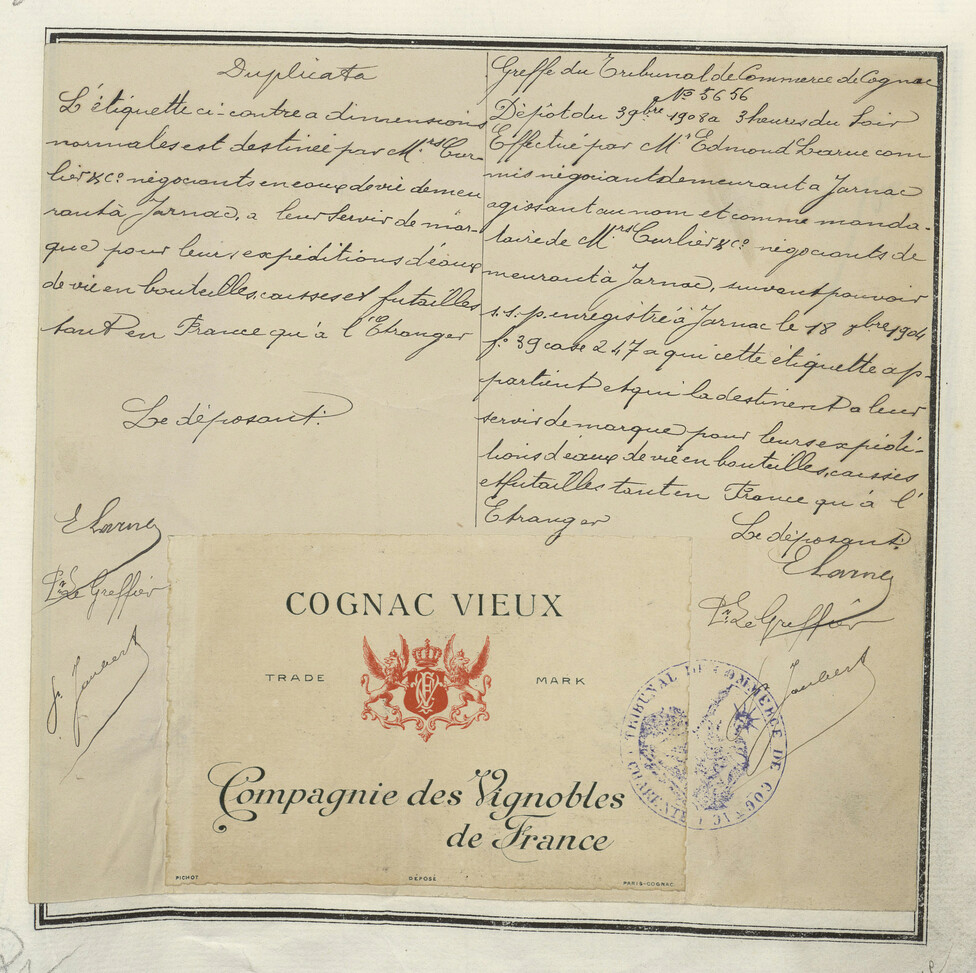 Duplicata
L'étiquette ci-contre a dimensions
normales est destinée par Mrs Cur-
lier & Co négociants en eaux de vie demeu
rant à Jarnac, a leur servir de mar-
que pour leurs expéditions d'eaux
de vie en bouteilles, caisses et futailles
tant en France qu'à l'Etranger
Le déposant:
E Larue
Pr Le Greffier
Greffe du Tribunal de Commerce de Cognac
No 5656
Dépôt du 3 9bre 1908 a 3 heures du Soir
Effectué par Mr Edmond Larue com
mis négociant demeurant a Jarnac
agissant au nom et comme manda-
taire de Mrs Curlier & Co négociants de
meurant à Jarnac, suivant pouvoir
s.s.p. enregistré à Jarnac le 18 8bre 1904
fo 39 case 247 a qui cette étiquette ap-
partient et qui la destinent a leur
servir de marque pour leurs expédi-
tions d'eaux de vie en bouteilles, caisses
et futailles tant en France qu'à l'
Etranger
Le déposant:
E Larue
Pr Le Greffier
COGNAC VIEUX
TRADE MARK
Compagnie des Vignobles
de France
PICHOT DÉPOSÉ PARIS-COGNAC
TRIBUNAL DE COMMERCE DE COGNAC